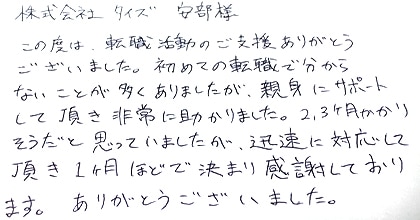 株式会社 タイズ 安部様
この度は、転職活動のご支援ありがとう
ございました。初めての転職で分から
ないことが多くありましたが、親身にサポート
して頂き非常に助かりました。2,3ヶ月かかり
そうだと思っていましたが、迅速に対応して
頂き1ヶ月ほどで決まり感謝しており
ます。 ありがとうございました。